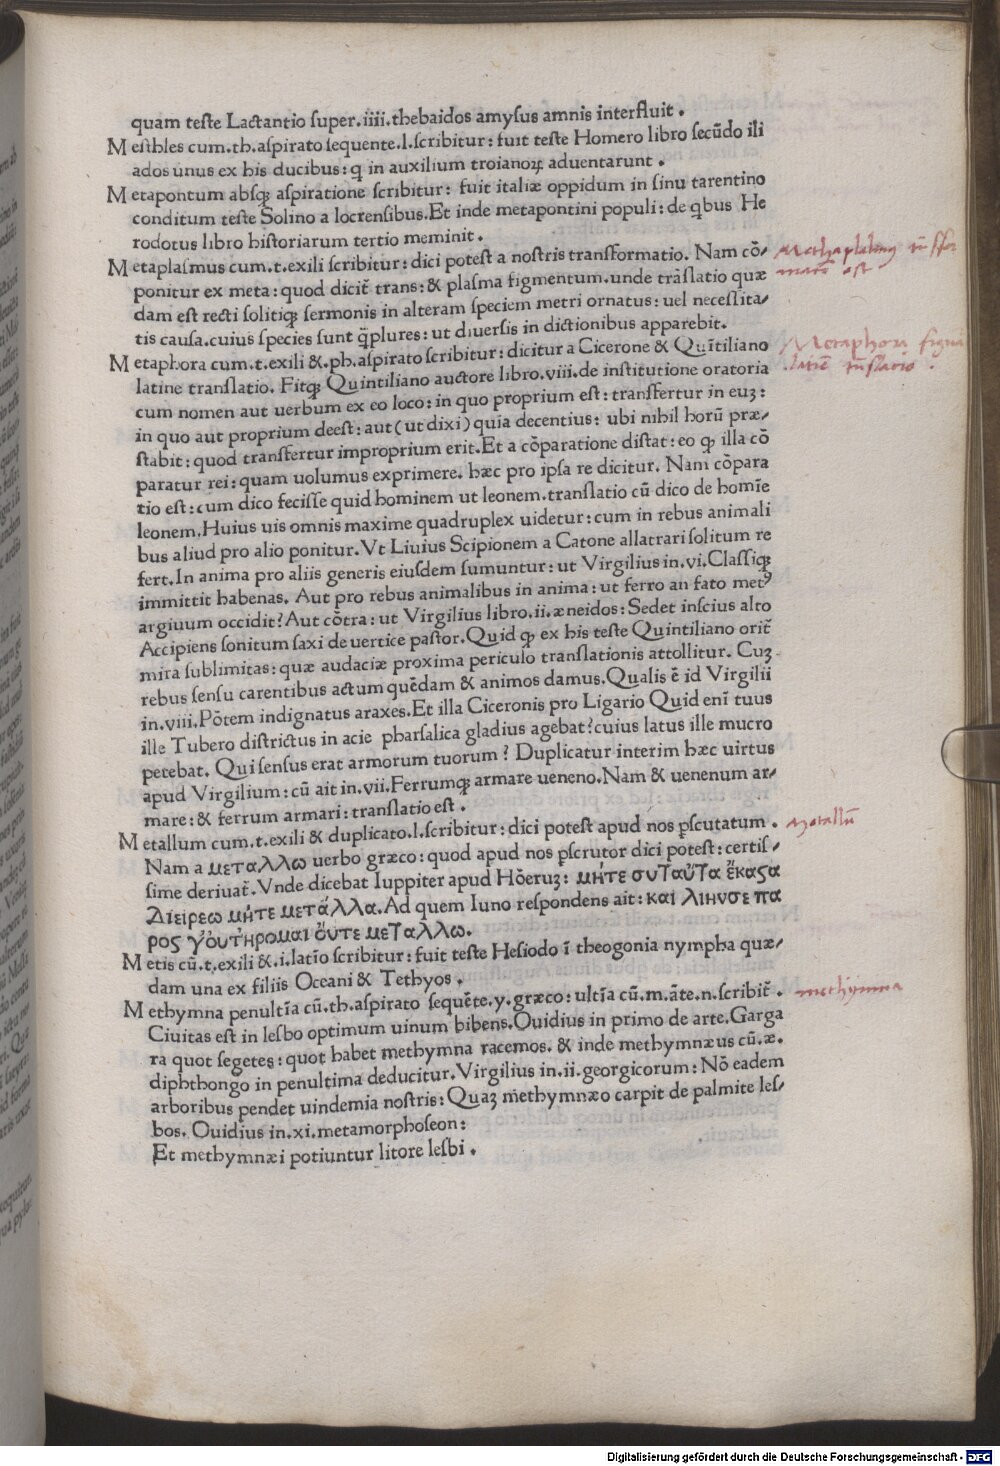 quam teſte Lactantio ſuper.iiii.thebaidos amyſus amnis interfluit.
Meſthles cum.th.aſpirato ſequente.l.ſcribitur: fuit teſte Homero libro ſecūdo ili
ados unus ex his ducibus: q in auxilium troianoꝝ aduentarunt.
Metapontum abſqꝫ aſpiratione ſcribitur: fuit italiæ oppidum in ſinu tarentino
conditum teſte Solino a locrenſibus.Et inde metapontini populi: de qbus He
rodotus libro hiſtoriarum tertio meminit.
Metaplaſmus cum.t.exili ſcribitur: dici poteſt a noſtris tranſformatio. Nam cō-
ponitur ex meta: quod dicit̄ trans: & plaſma figmentum.unde trāſlatio quæ
dam eſt recti ſolitiqꝫ ſermonis in alteram ſpeciem metri ornatus: uel neceſſita-
tis cauſa.cuius ſpecies ſunt q̄plures: ut diuerſis in dictionibus apparebit.
Metaphora cum.t.exili &.ph.aſpirato ſcribitur: dicitur a Cicerone & Quītiliano
latine tranſlatio. Fitqꝫ Quintiliano auctore libro.viii.de inſtitutione oratoria
cum nomen aut uerbum ex eo loco: in quo proprium eſt: tranſfertur in euꝫ:
in quo aut proprium deeſt: aut (ut dixi) quia decentius: ubi nihil horū præ-
ſtabit: quod tranſfertur improprium erit.Et a cōparatione diſtat: eo ꝙ illa cō
paratur rei: quam uolumus exprimere. hæc pro ipſa re dicitur. Nam cōpara
tio eſt: cum dico feciſſe quid hominem ut leonem.tranſlatio cū dico de homīe
leonem.Huius uis omnis maxime quadruplex uidetur: cum in rebus animali
bus aliud pro alio ponitur.Vt Liuius Scipionem a Catone allatrari ſolitum re
fert.In anima pro aliis generis eiuſdem ſumuntur: ut Virgilius in.vi.Claſſiqꝫ
immittit habenas. Aut pro rebus animalibus in anima: ut ferro an fato metꝰ
argiuum occidit? Aut cōtra: ut Virgilius libro.ii.æneidos: Sedet inſcius alto
Accipiens ſonitum ſaxi de uertice paſtor.Quid ꝙ ex his teſte Quintiliano orit̄
mira ſublimitas: quæ audaciæ proxima periculo tranſlationis attollitur. Cuꝫ
rebus ſenſu carentibus actum quēdam & animos damus.Qualis ē id Virgilii
in.viii.Pōtem indignatus araxes.Et illa Ciceronis pro Ligario Quid eni̅ tuus
ille Tubero diſtrictus in acie pharſalica gladius agebat? cuius latus ille mucro
petebat. Qui ſenſus erat armorum tuorum? Duplicatur interim hæc uirtus
apud Virgilium: cū ait in.vii.Ferrumqꝫ armare ueneno.Nam & uenenum ar-
mare: & ferrum armari: tranſlatio eſt.
Metallum cum.t.exili & duplicato.l.ſcribitur: dici poteſt apud nos pſcutatum.
Nam a μεταλλω uerbo græco: quod apud nos pſcrutor dici poteſt: certiſ-
ſime deriuat̄.Vnde dicebat Iuppiter apud Hōeruꝫ: μήτε συ ταῦτα ἕκαϛα
Διείρεω μήτε μετάλλα.Ad quem Iuno reſpondens ait: και λιηνσε πα
ρος γ̓ ὀυτ̓ηρομαι ὄυτε μεταλλω.
Metis cū.t.exili &.i.latīo ſcribitur: fuit teſte Heſiodo ī theogonia nympha quæ-
dam una ex filiis Oceani & Tethyos.
Methymna penultīa cū.th.aſpirato ſequēte.y.græco: ultīa cū.m.āte.n.ſcribit̄.
Ciuitas eſt in leſbo optimum uinum bibens.Ouidius in primo de arte.Garga
ra quot ſegetes: quot habet methymna racemos. & inde methymnæus cū.æ.
diphthongo in penultima deducitur.Virgilius in.ii.georgicorum: Nō eadem
arboribus pendet uindemia noſtris: Quaꝫ methymnæo carpit de palmite leſ-
bos. Ouidius in.xi.metamorphoſeon:
Et methymnæi potiuntur litore leſbi.
Metallū
methymna
Digitalisierung gefördert durch die Deutsche Forschungsgemeinschaft - DFG